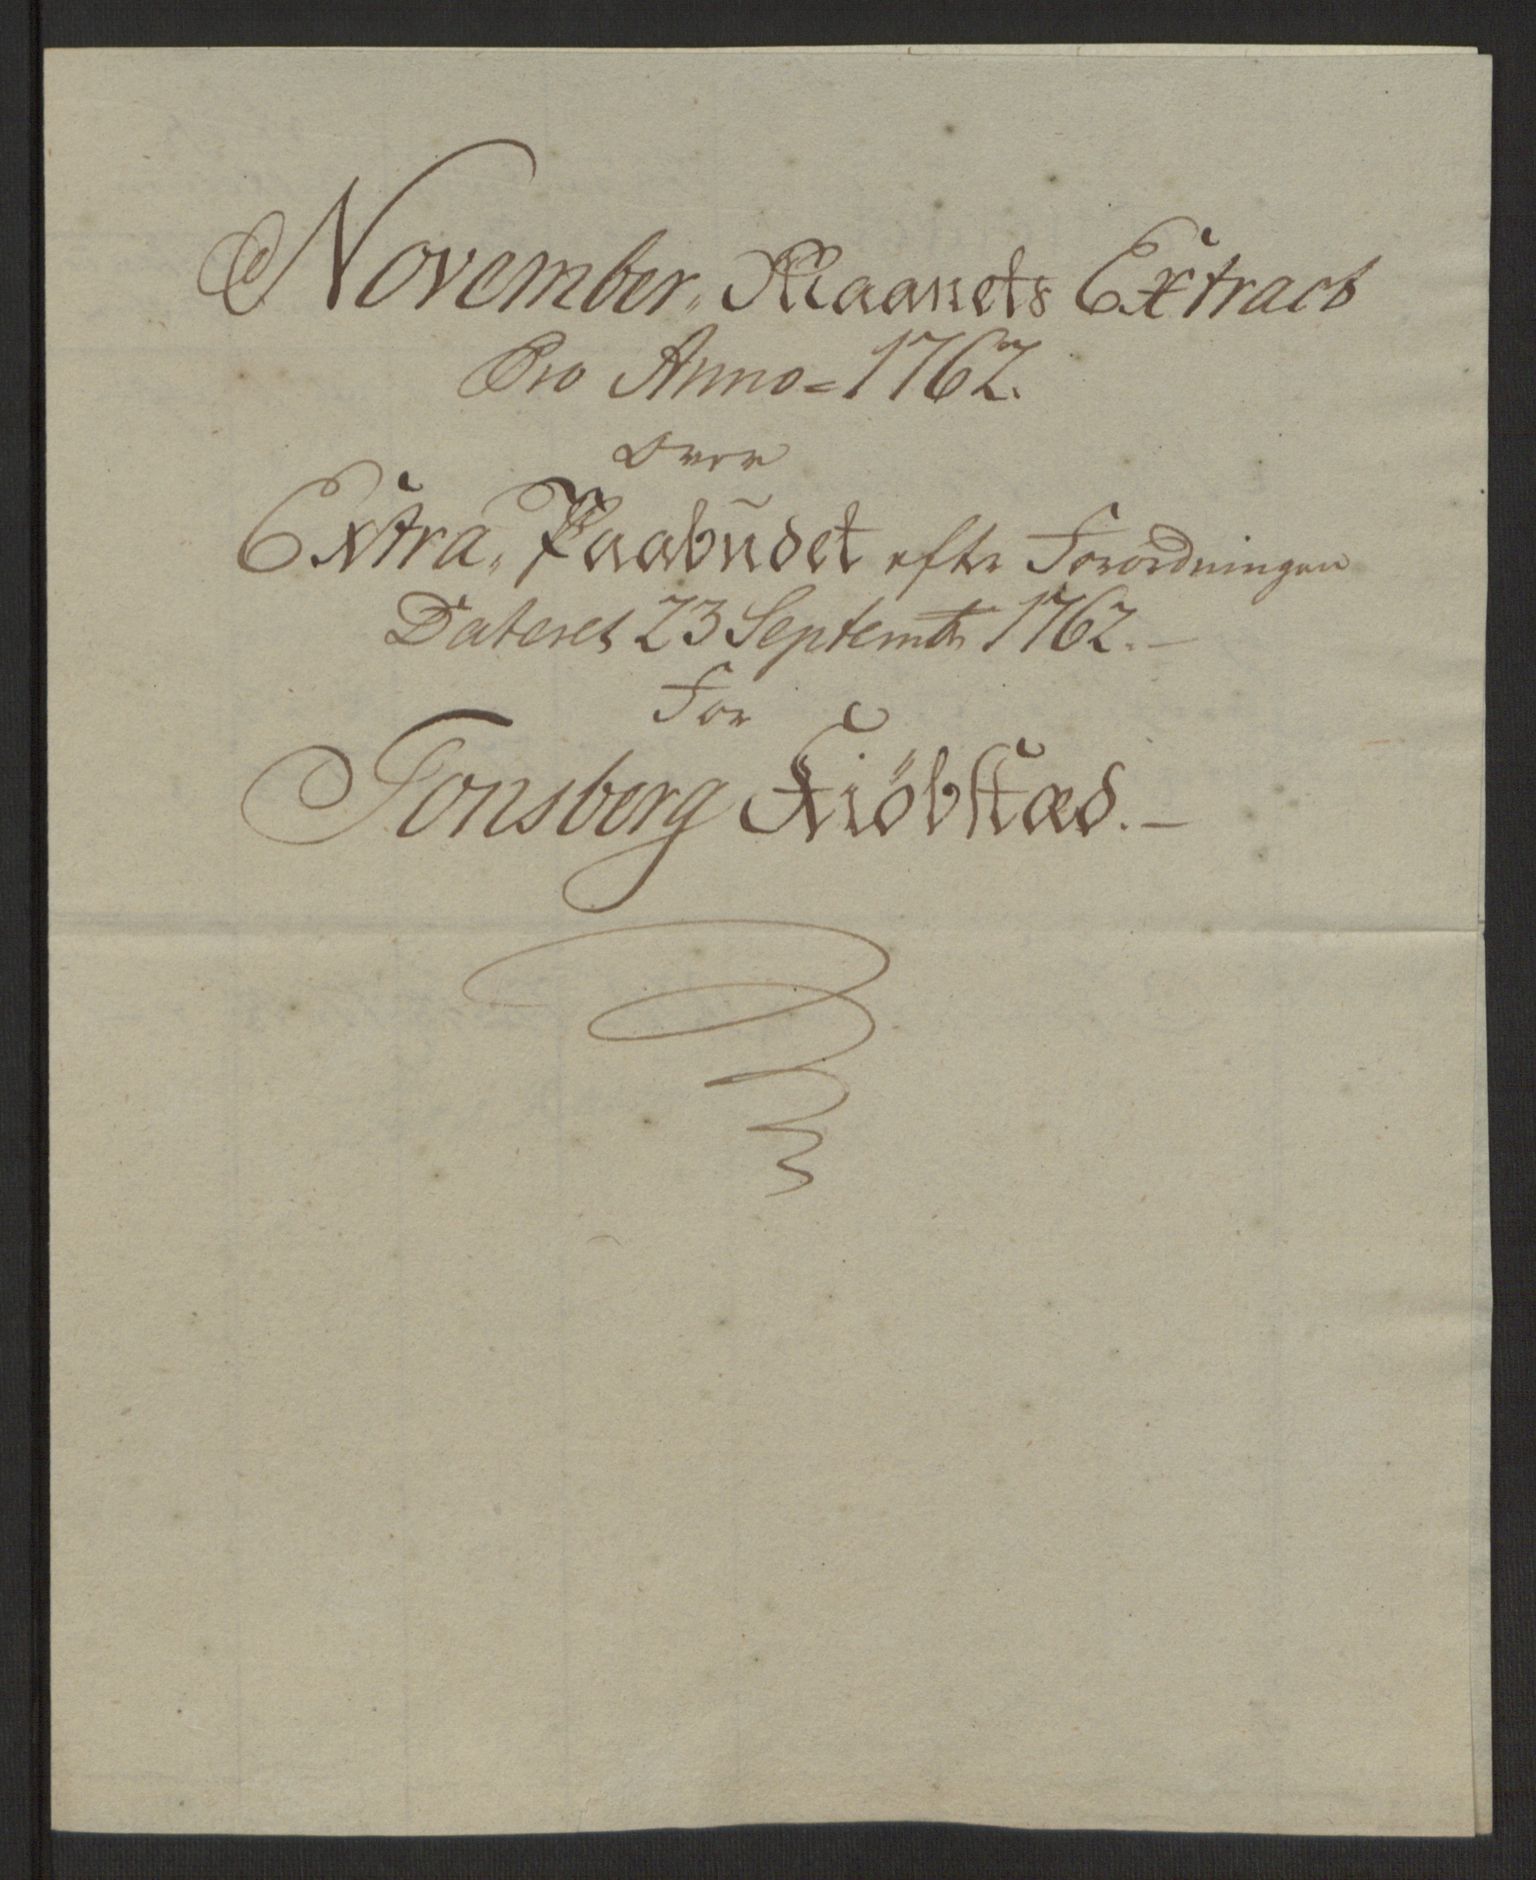 November, Maanets Extract
Pro Anno = 1762.
Over
Extra, Paabudet efter Forordningen
Dateret 23 Septembr 1762. —
For
Tonsberg Kiöbstæd. —